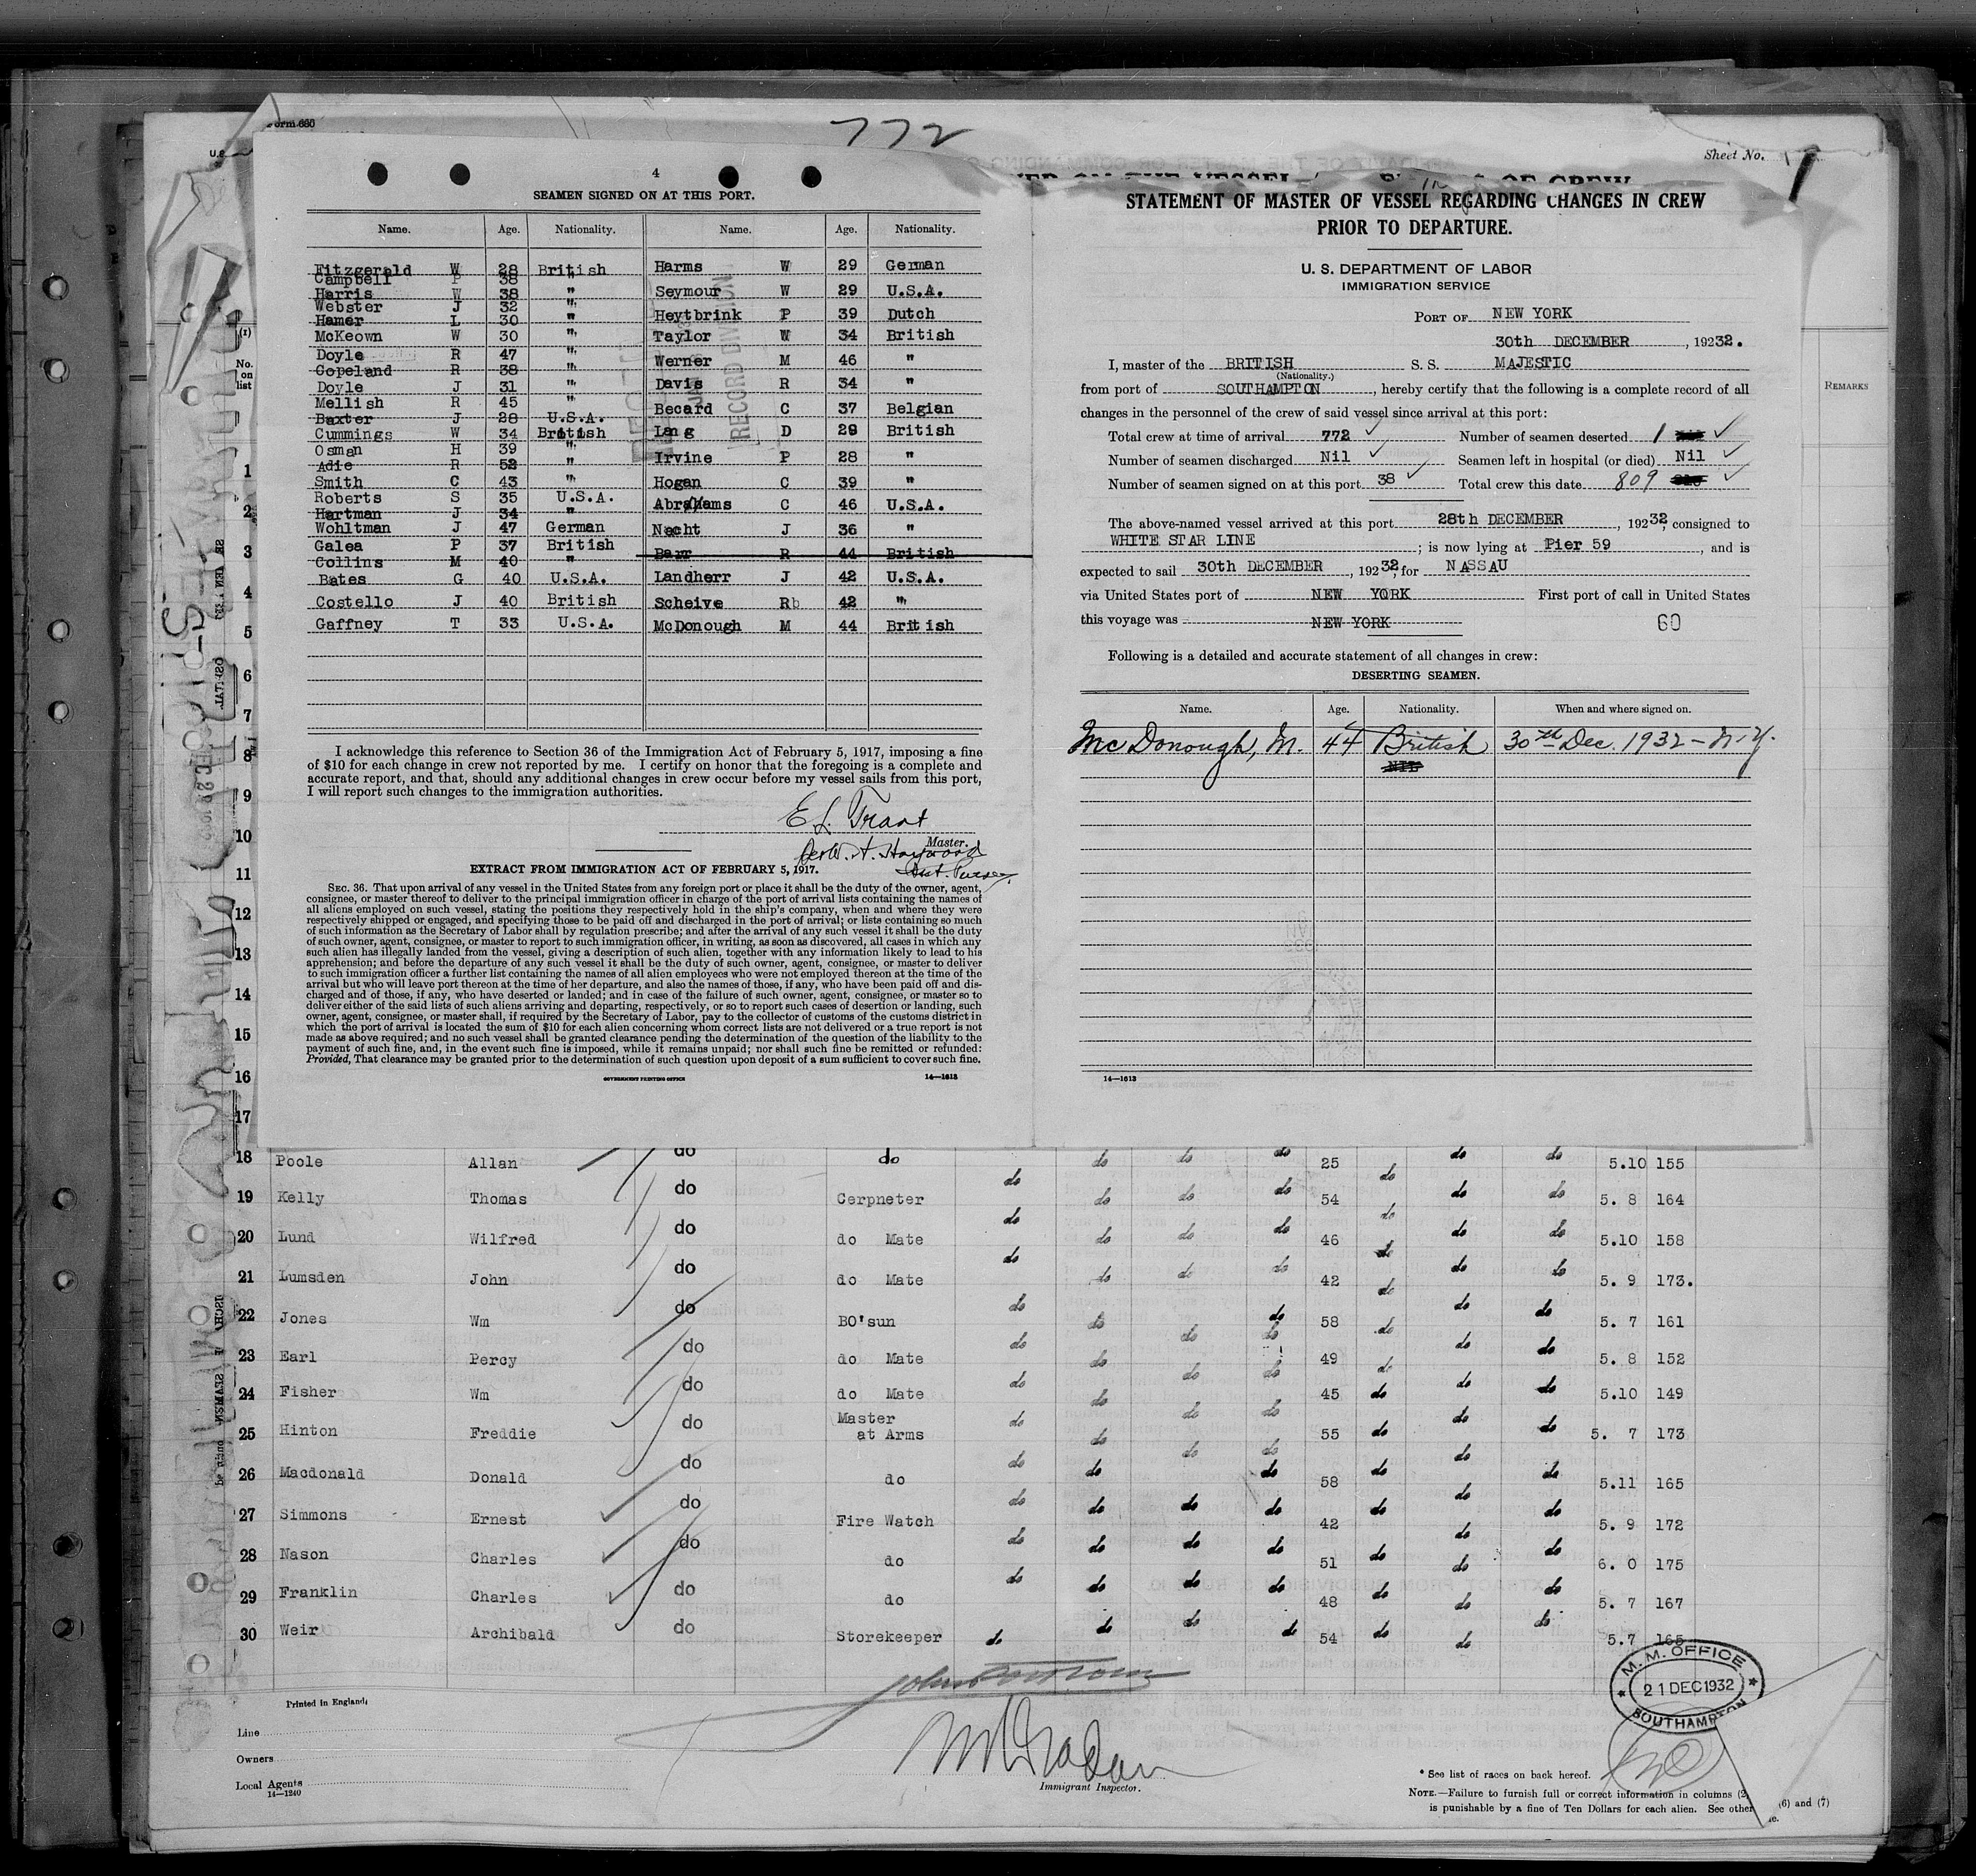 Form 660
772
Sheet No. 1
4
SEAMEN SIGNED ON AT THIS PORT.
Name. Age. Nationality. Name. Age. Nationality.
Fitzgerald W 28 British
Campbell P 38 "
Harris W 38 "
Webster J 32 "
Hamer L 30 "
McKeown W 30 "
Doyle R 47 "
Copeland R 38 "
Doyle J 31 "
Mellish R 45 "
Baxter J 28 U.S.A.
Cummings W 34 British
Osman H 39 "
Adie R 52 "
Smith C 43 "
Roberts S 35 U.S.A.
Hartman J 34 "
Wohltman J 47 German
Galea P 37 British
Collins M 40 "
Bates G 40 U.S.A.
Costello J 40 British
Gaffney T 33 U.S.A.
Harms W 29 German
Seymour W 29 U.S.A.
Heytbrink P 39 Dutch
Taylor W 34 British
Werner M 46 "
Davis R 34 "
Becard C 37 Belgian
Lang D 29 British
Irvine P 28 "
Hogan C 39 "
Abrahams C 46 U.S.A.
Nacht J 36 "
Barr R 44 British
Landherr J 42 U.S.A.
Scheive Rb 42 "
McDonough M 44 British
RECORD DIVISION
I acknowledge this reference to Section 36 of the Immigration Act of February 5, 1917, imposing a fine
of $10 for each change in crew not reported by me. I certify on honor that the foregoing is a complete and
accurate report, and that, should any additional changes in crew occur before my vessel sails from this port,
I will report such changes to the immigration authorities.
E L Trant
Master.
EXTRACT FROM IMMIGRATION ACT OF FEBRUARY 5, 1917.
SEC. 36. That upon arrival of any vessel in the United States from any foreign port or place it shall be the duty of the owner, agent,
consignee, or master thereof to deliver to the principal immigration officer in charge of the port of arrival lists containing the names of
all aliens employed on such vessel, stating the positions they respectively hold in the ship's company, when and where they were
respectively shipped or engaged, and specifying those to be paid off and discharged in the port of arrival; or lists containing so much
of such information as the Secretary of Labor shall by regulation prescribe; and after the arrival of any such vessel it shall be the duty
of such owner, agent, consignee, or master to report to such immigration officer, in writing, as soon as discovered, all cases in which any
such alien has illegally landed from the vessel, giving a description of such alien, together with any information likely to lead to his
apprehension; and before the departure of any such vessel it shall be the duty of such owner, agent, consignee, or master to deliver
to such immigration officer a further list containing the names of all alien employees who were not employed thereon at the time of the
arrival but who will leave port thereon at the time of her departure, and also the names of those, if any, who have been paid off and dis-
charged and of those, if any, who have deserted or landed; and in case of the failure of such owner, agent, consignee, or master so to
deliver either of the said lists of such aliens arriving and departing, respectively, or so to report such cases of desertion or landing, such
owner, agent, consignee, or master shall, if required by the Secretary of Labor, pay to the collector of customs of the customs district in
which the port of arrival is located the sum of $10 for each alien concerning whom correct lists are not delivered or a true report is not
made as above required; and no such vessel shall be granted clearance pending the determination of the question of the liability to the
payment of such fine, and, in the event such fine is imposed, while it remains unpaid; nor shall such fine be remitted or refunded:
Provided, That clearance may be granted prior to the determination of such question upon deposit of a sum sufficient to cover such fine.
GOVERNMENT PRINTING OFFICE 14—1613
STATEMENT OF MASTER OF VESSEL REGARDING CHANGES IN CREW
PRIOR TO DEPARTURE.
U. S. DEPARTMENT OF LABOR
IMMIGRATION SERVICE
PORT OF NEW YORK
30th DECEMBER, 19232.
I, master of the BRITISH S. S. MAJESTIC
(Nationality.)
from port of SOUTHAMPTON, hereby certify that the following is a complete record of all
changes in the personnel of the crew of said vessel since arrival at this port:
Total crew at time of arrival 772 Number of seamen deserted 1
Number of seamen discharged Nil Seamen left in hospital (or died) Nil
Number of seamen signed on at this port 38 Total crew this date 809
The above-named vessel arrived at this port 28th DECEMBER, 19232, consigned to
WHITE STAR LINE; is now lying at Pier 59, and is
expected to sail 30th DECEMBER, 19232, for NASSAU
via United States port of NEW YORK First port of call in United States
this voyage was NEW YORK 60
Following is a detailed and accurate statement of all changes in crew:
DESERTING SEAMEN.
Name. Age. Nationality. When and where signed on.
McDonough, M. 44 British 30th Dec. 1932 - N.Y.
NIL
14—1613
REMARKS
(1)
No. on list
1
2
3
4
5
6
7
8
9
10
11
12
13
14
15
16
17
18 Poole Allan do do do do do do 25 do do do 5.10 155
19 Kelly Thomas do Cerpneter do do do do 54 do do do 5. 8 164
20 Lund Wilfred do do Mate do do do do 46 do do do 5.10 158
21 Lumsden John do do Mate do do do do 42 do do do 5. 9 173.
22 Jones Wm do BO'sun do do do do 58 do do do 5. 7 161
23 Earl Percy do do Mate do do do do 49 do do do 5. 8 152
24 Fisher Wm do do Mate do do do do 45 do do do 5.10 149
25 Hinton Freddie do Master at Arms do do do do 55 do do do 5. 7 173
26 Macdonald Donald do do do do do do 58 do do do 5.11 165
27 Simmons Ernest do Fire Watch do do do do 42 do do do 5. 9 172
28 Nason Charles do do do do do do 51 do do do 6. 0 175
29 Franklin Charles do do do do do do 48 do do do 5. 7 167
30 Weir Archibald do Storekeeper do do do do 54 do do do 5.7 165
Printed in England.
Line
Owners
Local Agents
14—1240
Immigrant Inspector.
M. M. OFFICE
21 DEC 1932
SOUTHAMPTON
* See list of races on back hereof.
NOTE.—Failure to furnish full or correct information in columns (2) (6) and (7)
is punishable by a fine of Ten Dollars for each alien. See other